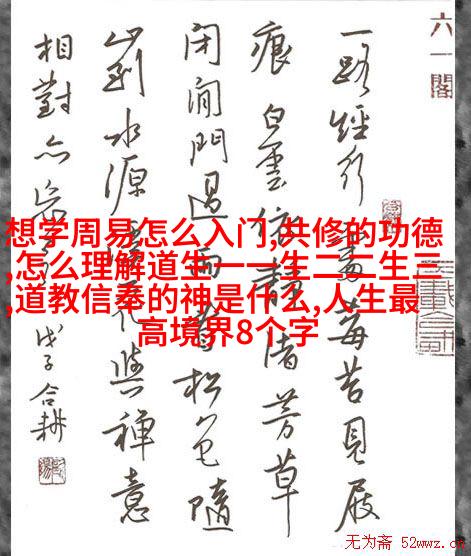 六一閣
一路經行處莓苔見屐
痕白雲依靜渚芳草
閉閒門過雨看松色隨
山到水源花與禪意
相對亦
戊子合耕
想学周易怎么入门,共修的功德
,怎么理解道生一一生二二生三
,道教信奉的神是什么,人生最
高境界8个字
无为斋 52wwz.cn